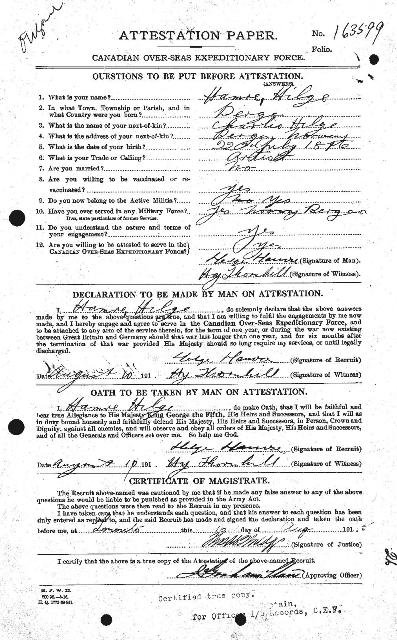 ATTESTATION PAPER.
No. 163599
Folio.
CANADIAN OVER-SEAS EXPEDITIONARY FORCE.
QUESTIONS TO BE PUT BEFORE ATTESTATION.
(ANSWERS)
1. What is your name? Hamre, Helge
2. In what Town, Township or Parish, and in what Country were you born? Bergen
3. What is the name of your next-of-kin? Helge
4. What is the address of your next-of-kin? Bergen Norway
5. What is the date of your birth? 22 July 1896
6. What is your Trade or Calling? Artist
7. Are you married? No
8. Are you willing to be vaccinated or re-vaccinated? Yes
9. Do you now belong to the Active Militia? Yes
10. Have you ever served in any Military Force? Yes Norway Bergen
If so, state particulars of former Service.
11. Do you understand the nature and terms of your engagement? Yes
12. Are you willing to be attested to serve in the CANADIAN OVER-SEAS EXPEDITIONARY FORCE? Yes
Helge Hamre (Signature of Man).
Hy Thornhill (Signature of Witness).
DECLARATION TO BE MADE BY MAN ON ATTESTATION.
I, Hamre Helge, do solemnly declare that the above answers
made by me to the above questions are true, and that I am willing to fulfil the engagements by me now
made, and I hereby engage and agree to serve in the Canadian Over-Seas Expeditionary Force, and
to be attached to any arm of the service therein, for the term of one year, or during the war now existing
between Great Britain and Germany should that war last longer than one year, and for six months after
the termination of that war provided His Majesty should so long require my services, or until legally
discharged.
Helge Hamre (Signature of Recruit)
Date August 10 191 Hy Thornhill (Signature of Witness)
OATH TO BE TAKEN BY MAN ON ATTESTATION.
I, Hamre Helge, do make Oath, that I will be faithful and
bear true Allegiance to His Majesty King George the Fifth, His Heirs and Successors, and that I will as
in duty bound honestly and faithfully defend His Majesty, His Heirs and Successors, in Person, Crown and
Dignity, against all enemies, and will observe and obey all orders of His Majesty, His Heirs and Successors,
and of all the Generals and Officers set over me. So help me God.
Helge Hamre (Signature of Recruit)
Date August 10 191 Hy Thornhill (Signature of Witness)
CERTIFICATE OF MAGISTRATE.
The Recruit above-named was cautioned by me that if he made any false answer to any of the above
questions he would be liable to be punished as provided in the Army Act.
The above questions were then read to the Recruit in my presence.
I have taken care that he understands each question, and that his answer to each question has been
duly entered as replied to, and the said Recruit has made and signed the declaration and taken the oath
before me, at Toronto this 10 day of Aug 191
(Signature of Justice)
I certify that the above is a true copy of the Attestation of the above-named Recruit.
(Approving Officer)
Certified true copy.
for Officer i/c Records, C.E.F.